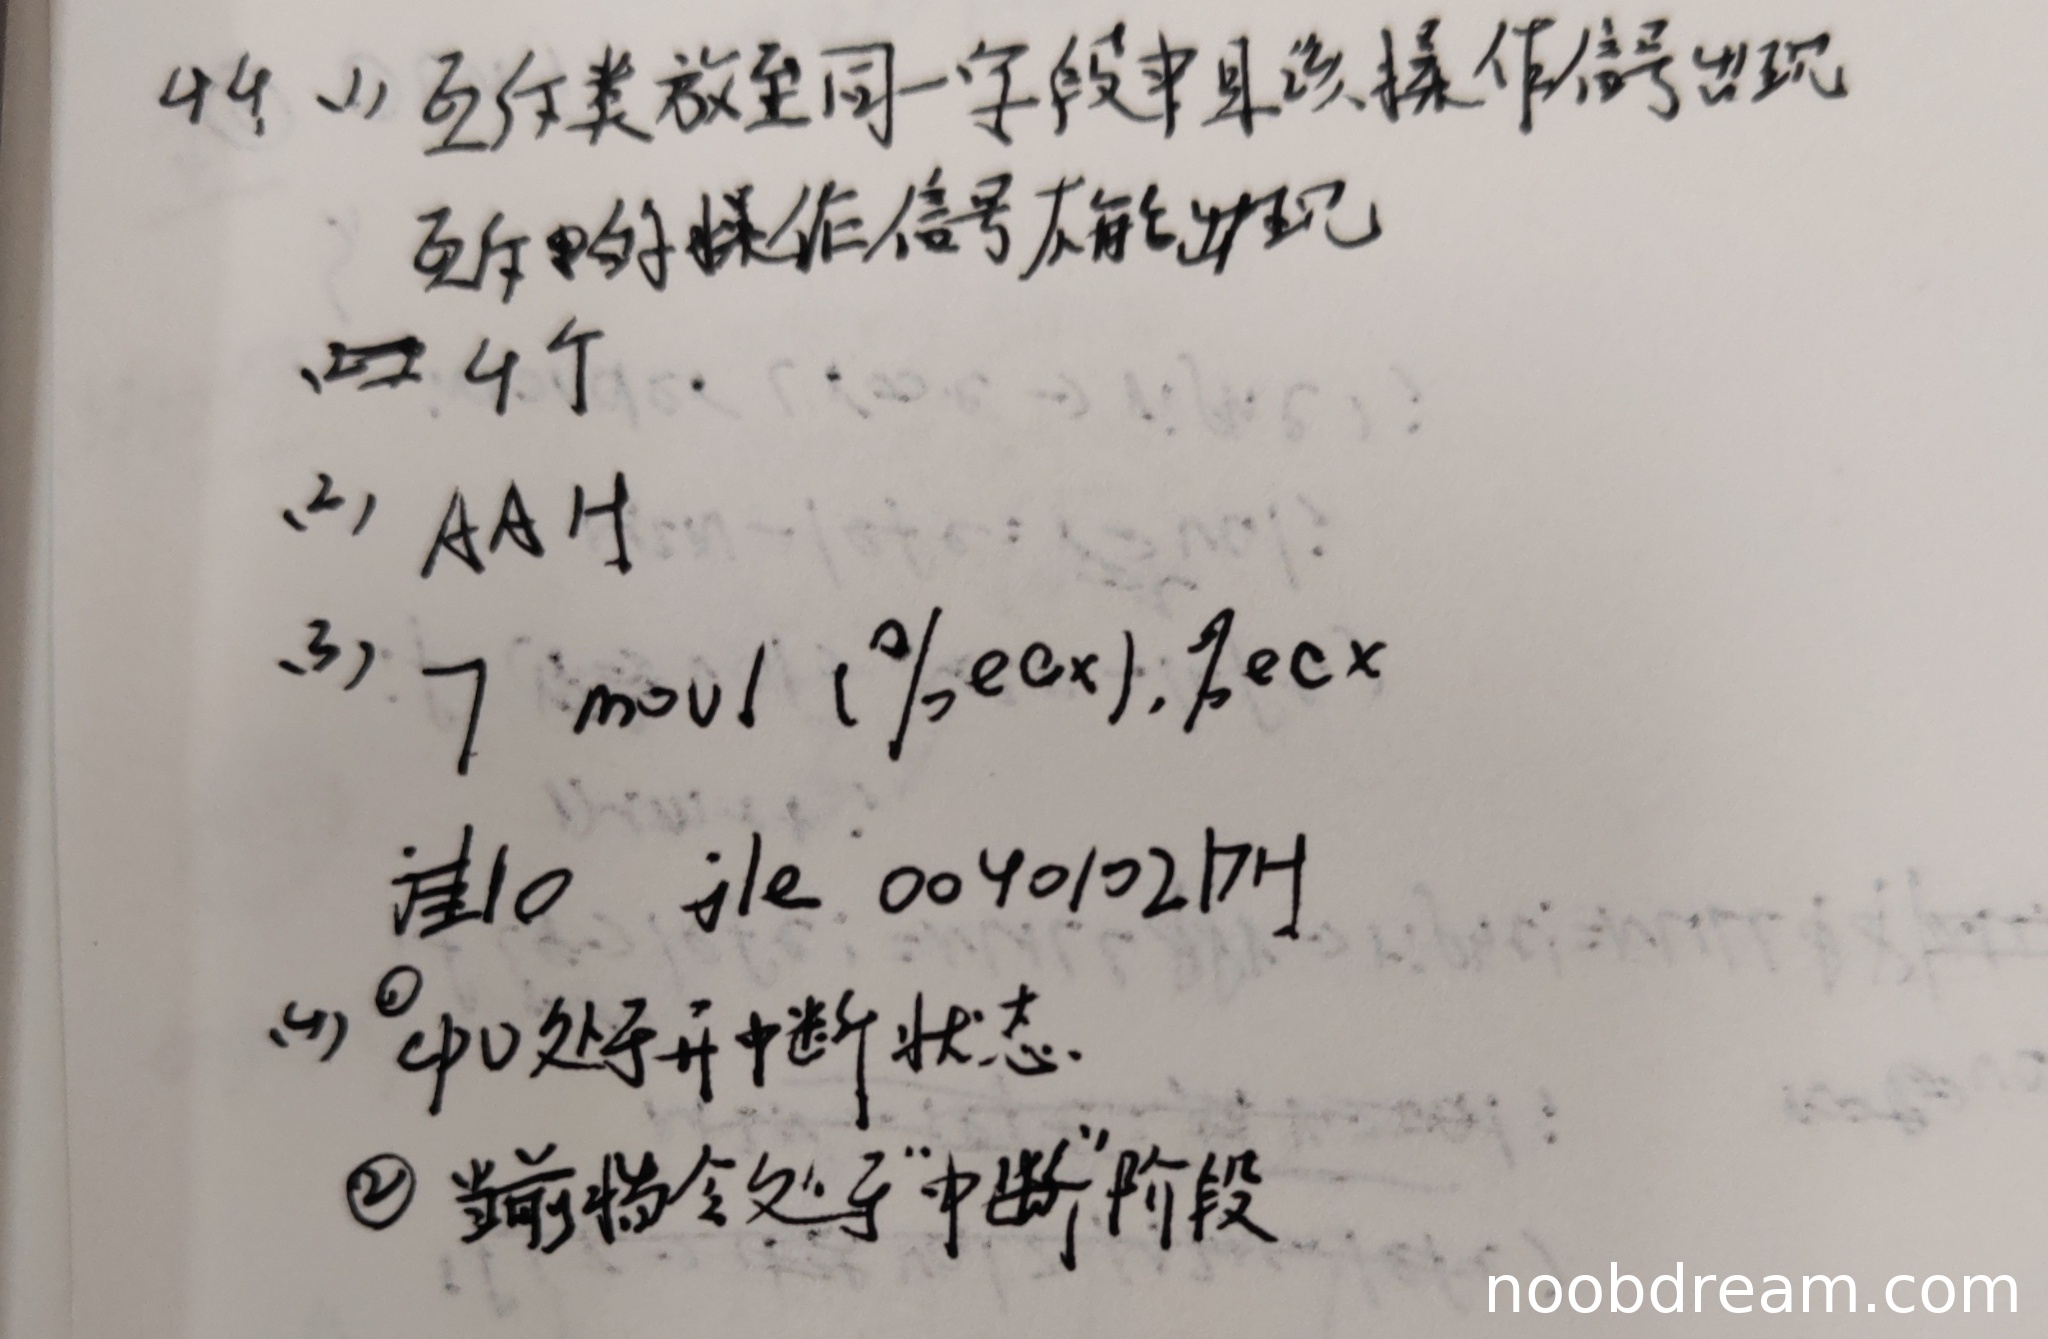 44 (1) 互斥类放至同一字段中且该操作信号出现
互斥中的操作信号不能出现
4个
(2) AAH
(3) 7 movl (%ecx), %ecx
10 jle 0040102DH
(4) ① CPU处于开中断状态.
② 当前指令处于"中断"阶段
noobdream.com